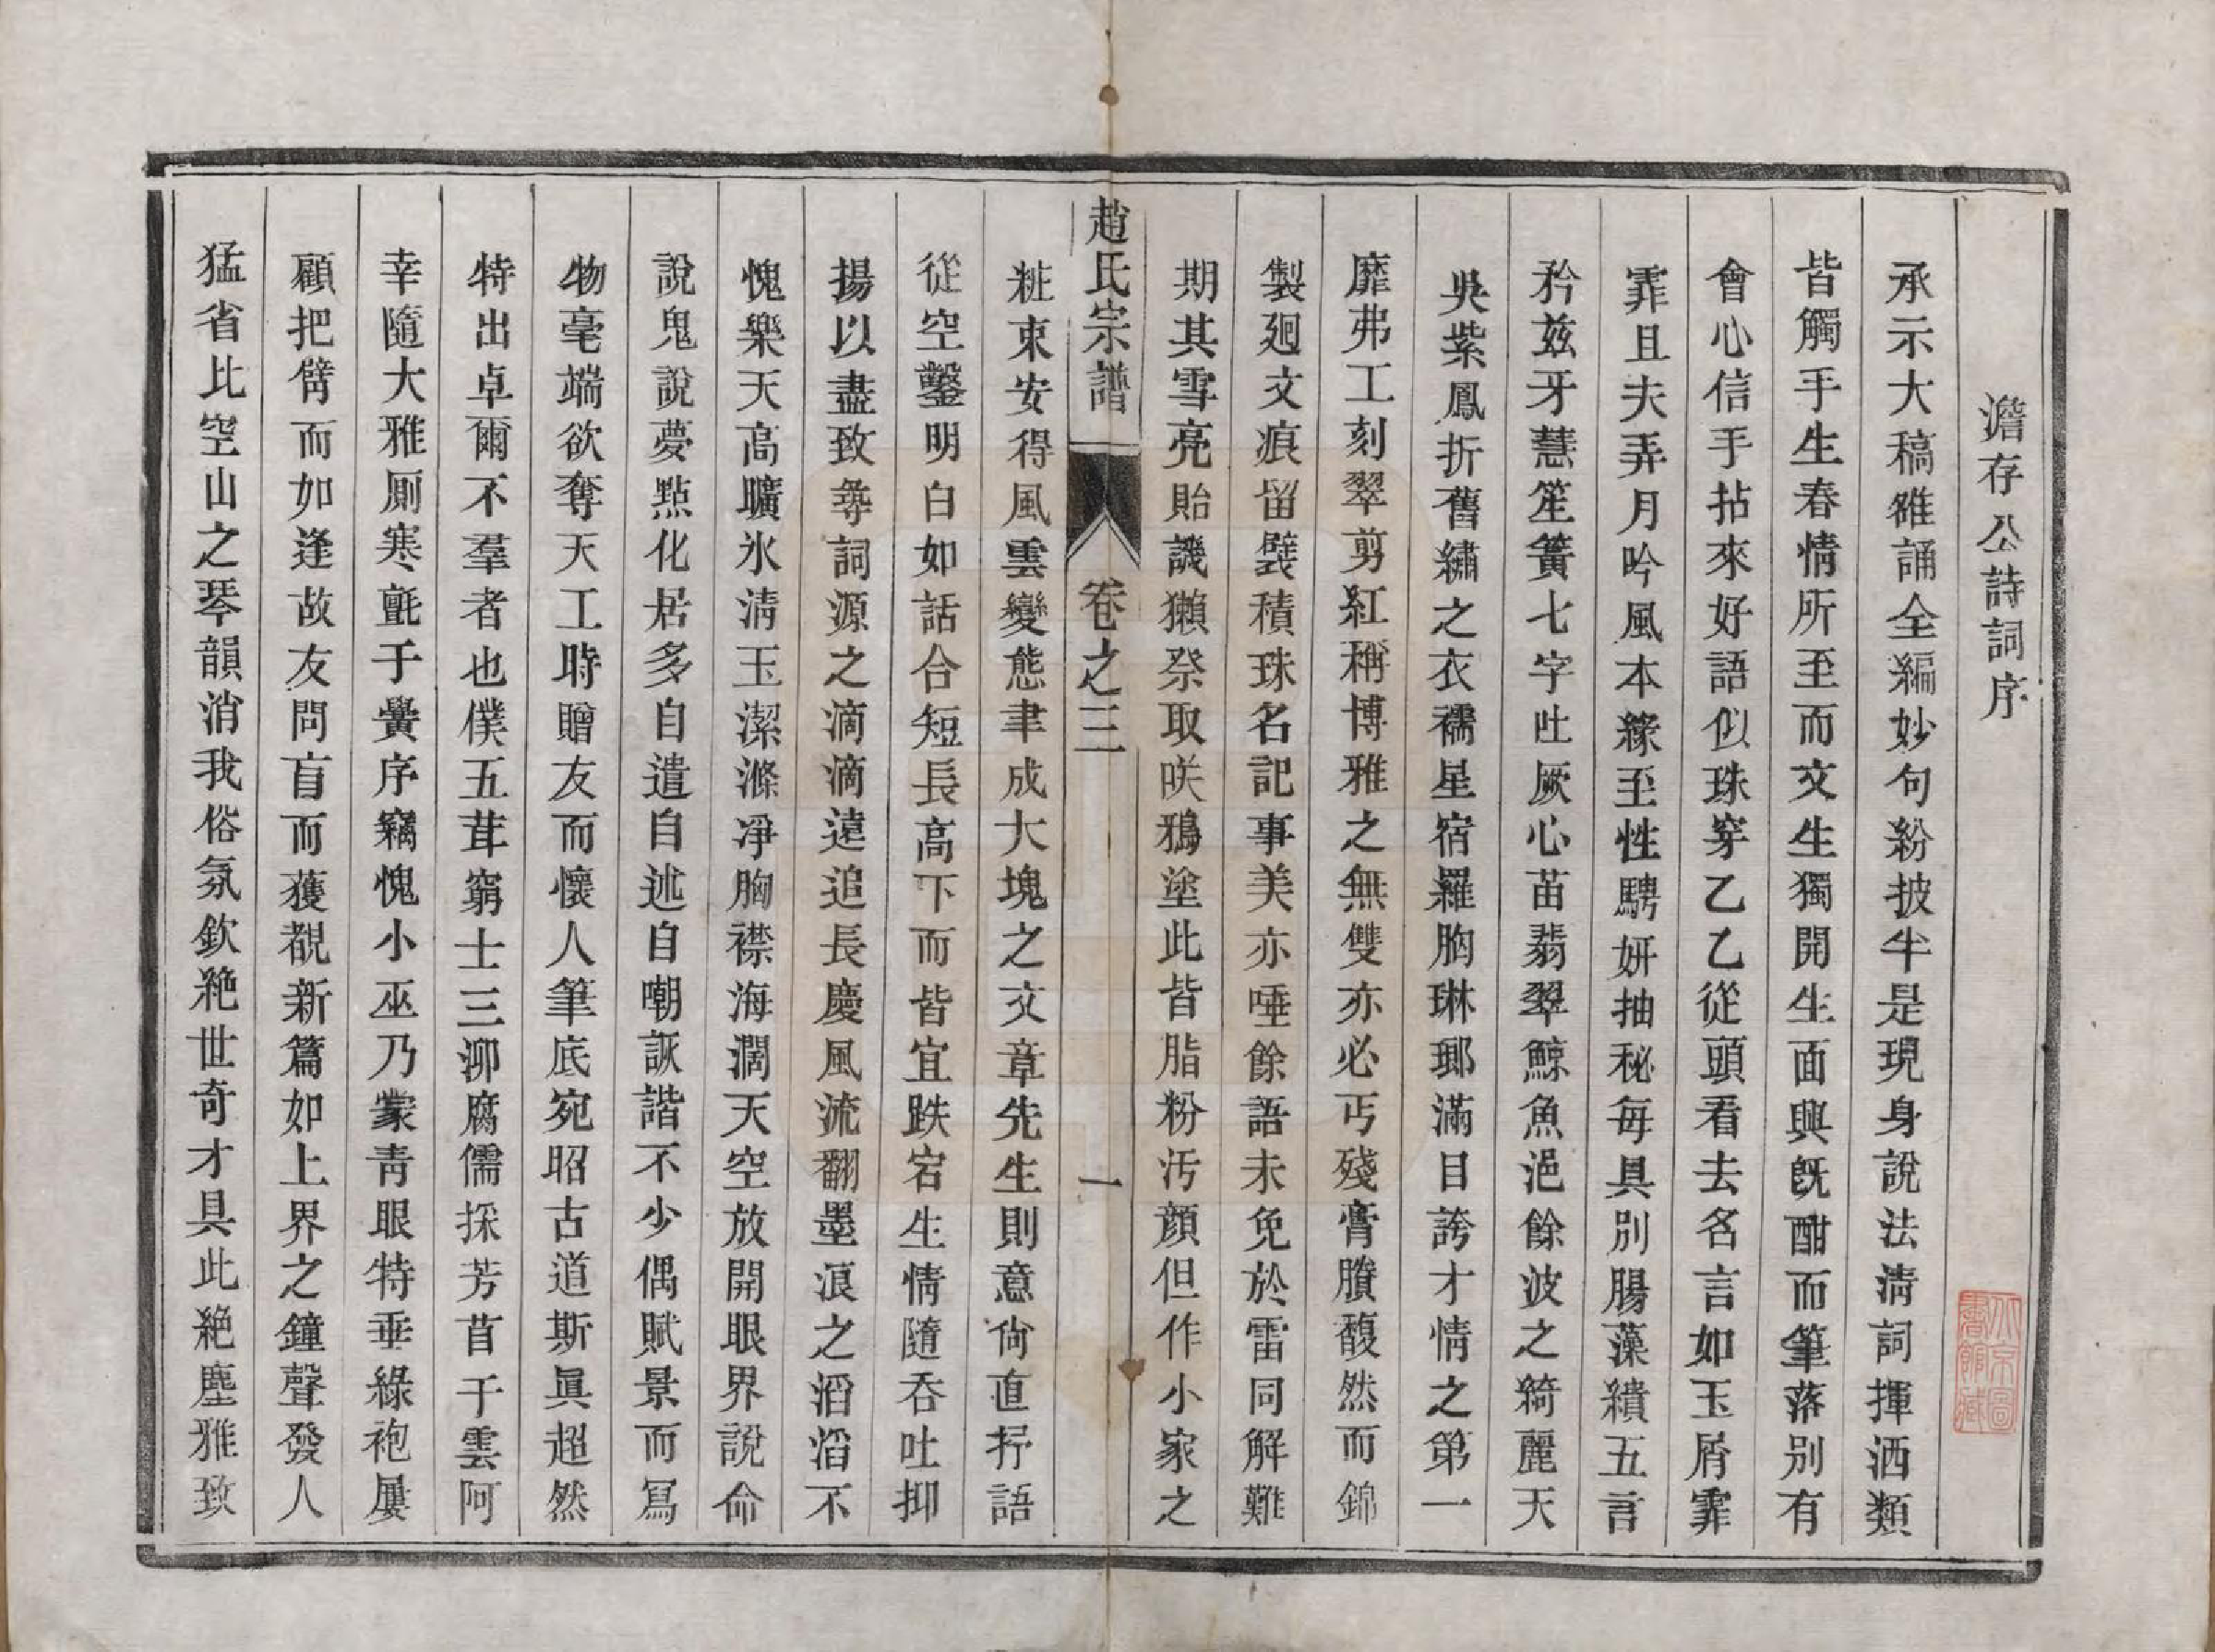 澹存公詩詞序
承示大稿雒誦全編妙句紛披半是現身說法淸詞揮洒類
皆觸手生春情所至而文生獨開生面興旣酣而筆落別有
會心信手拈來好語似珠穿乙乙從頭看去名言如玉屑霏
霏且夫弄月吟風本緣至性騁妍抽秘每具別腸藻繢五言
矜兹牙慧笙簧七字吐厥心苗翡翠鯨魚浥餘波之綺麗天
吳紫鳳折舊繡之衣襦星宿羅胸琳瑯滿目誇才情之第一
靡弗工刻翠剪紅稱博雅之無雙亦必丐殘膏賸馥然而錦
製廻文痕留襞積珠名記事美亦唾餘語未免於雷同解難
期其雪亮貽譏獺祭取咲鴉塗此皆脂粉汚顏但作小家之
趙氏宗譜 卷之三 一
粧束安得風雲變態聿成大塊之文章先生則意尙直抒語
從空鑿明白如話合短長高下而皆宜跌宕生情隨吞吐抑
揚以盡致尋詞源之滴滴遠追長慶風流翻墨浪之滔滔不
愧樂天高曠氷淸玉潔滌凈胸襟海濶天空放開眼界說命
說鬼說夢點化居多自遣自述自嘲詼諧不少偶賦景而寫
物毫端欲奪天工時贈友而懷人筆底宛昭古道斯眞超然
特出卓爾不羣者也僕五茸窮士三泖腐儒採芳苜于雲阿
幸隨大雅厠寒氈于黌序竊愧小巫乃蒙靑眼特垂綠袍屢
顧把臂而如逢故友問盲而獲覩新篇如上界之鐘聲發人
猛省比空山之琴韻消我俗氛欽絶世奇才具此絶塵雅致
北京圖
書館藏